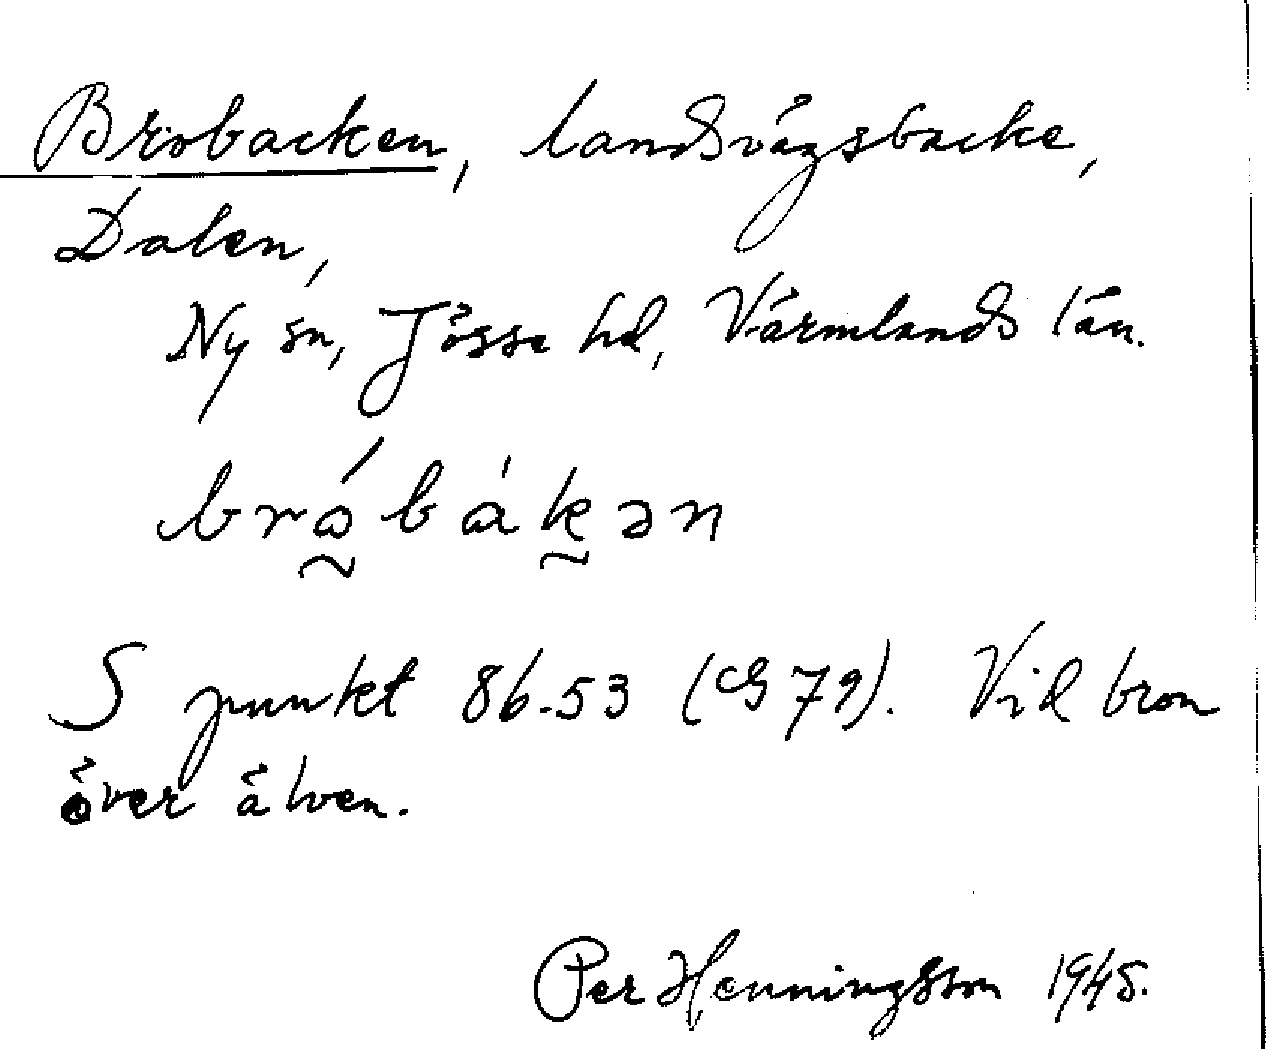 Brobacken, landsvägsbacke,
Dalen,
Ny sn, Jösse hd, Värmlands län.
brɷ́bàkən
S punkt 86-53 (CG 79). Vid bron
över älven.
Per Henningsson 1945.